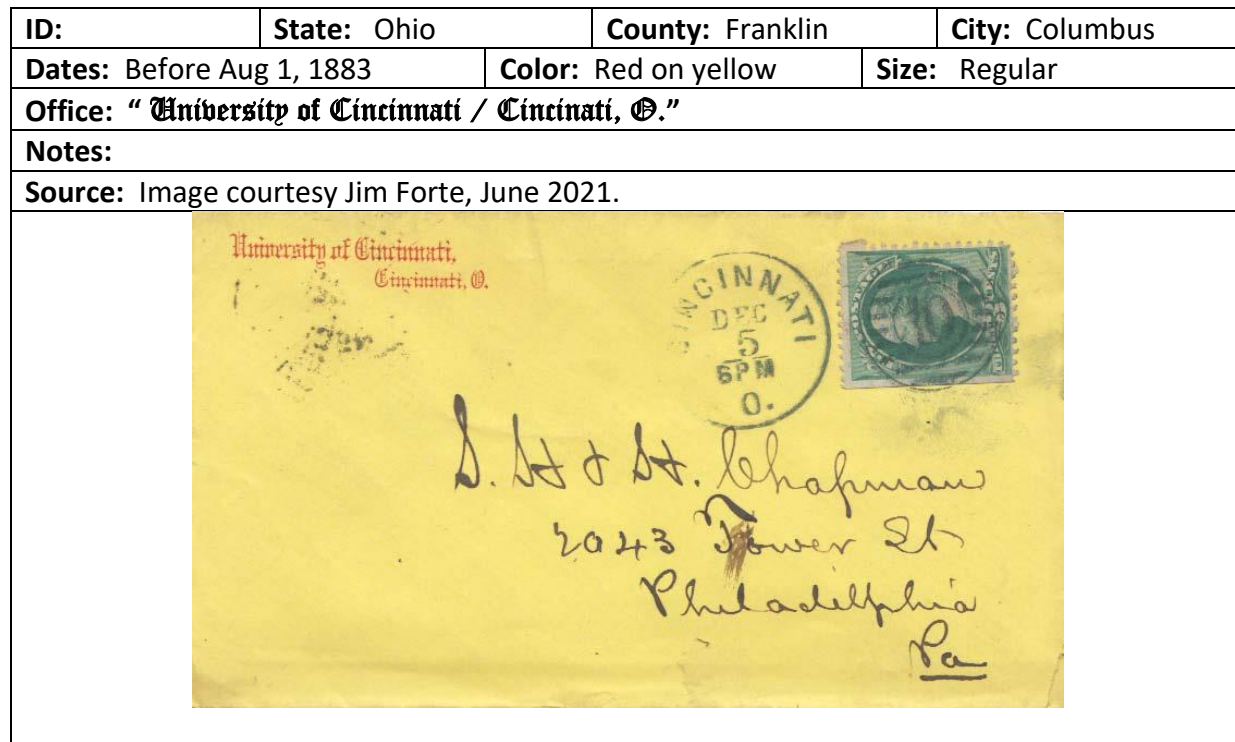 ID: State: Ohio County: Franklin City: Columbus
Dates: Before Aug 1, 1883 Color: Red on yellow Size: Regular
Office: “ University of Cincinnati / Cincinati, O.”
Notes:
Source: Image courtesy Jim Forte, June 2021.
University of Cincinnati,
Cincinnati, O.
CINCINNATI
DEC
5
6PM
O.
S. H & H. Chapman
2043 Tower St
Philadelphia
Pa